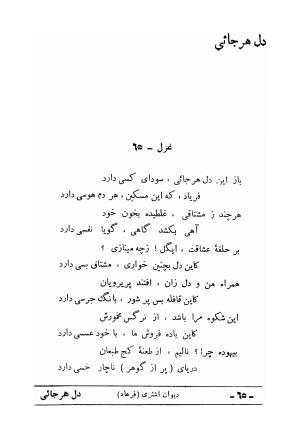 دل هرجائی
غزل - ۶۵
باز این دل هرجائی ، سودای کسی دارد
فریاد ، که این مسکین ، هر دم هوسی دارد
هرچند ز مشتاقی ، غلطیده بخون خود
آهی بکشد گاهی ، گویا نفسی دارد
بر حلقهٔ عشاقت ، ایگل ! زچه مینازی ؟
کاین دل بچنین خواری ، مشتاق بسی دارد
همراه من و دل زان ، افتند پریرویان
کاین قافله بس پر شور ، بانگ جرسی دارد
این شکوه مرا باشد ، از نرگس مخمورش
کاین باده فروش ما ، با خود عسسی دارد
بیهوده چرا ؟ نالیم ، از طعنهٔ کج طبعان
دریای ( پر از گوهر ) ناچار خسی دارد
- ۶۵ - دیوان اشتری (فرهاد) دل هرجائی